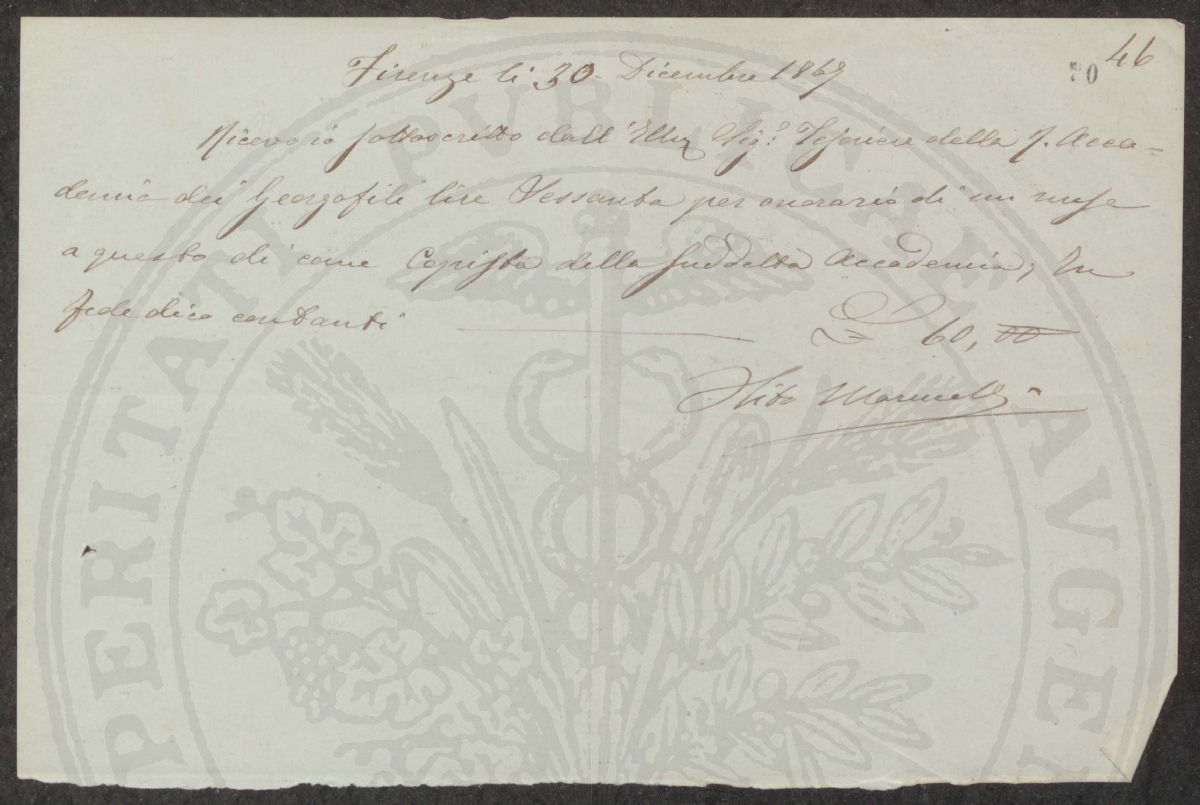 46
70
Firenze li 30 Dicembre 1869
Ricevo io sottoscritto dall' Illmo Sig.e Tesoriere della R. Acca-
demia dei Georgofili lire Sessanta per onorario di un mese
a questo dì come Copista della suddetta Accademia, In
fede dico contanti £ 60,00
PERITATI PUBLICAE AUGEN